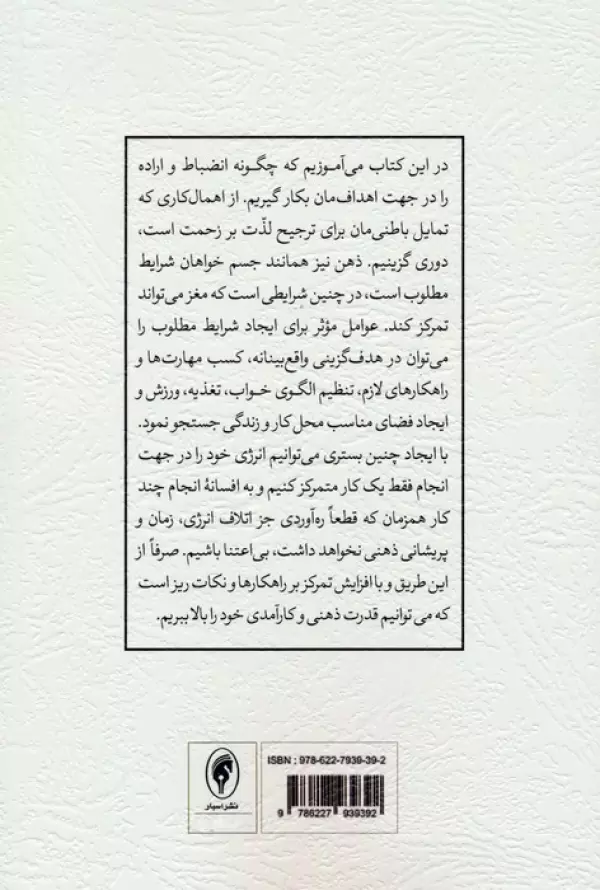 در این کتاب می‌آموزیم که چگونه انضباط و اراده
را در جهت اهداف‌مان بکار گیریم. از اهمال‌کاری که
تمایل باطنی‌مان برای ترجیح لذّت بر زحمت است،
دوری گزینیم. ذهن نیز همانند جسم خواهان شرایط
مطلوب است، در چنین شرایطی است که مغز می‌تواند
تمرکز کند. عوامل مؤثر برای ایجاد شرایط مطلوب را
می‌توان در هدف‌گزینی واقع‌بینانه، کسب مهارت‌ها و
راهکارهای لازم، تنظیم الگوی خواب، تغذیه، ورزش و
ایجاد فضای مناسب محل کار و زندگی جستجو نمود.
با ایجاد چنین بستری می‌توانیم انرژی خود را در جهت
انجام فقط یک کار متمرکز کنیم و به افسانهٔ انجام چند
کار همزمان که قطعاً ره‌آوردی جز اتلاف انرژی، زمان و
پریشانی ذهنی نخواهد داشت، بی‌اعتنا باشیم. صرفاً از
این طریق و با افزایش تمرکز بر راهکارها و نکات ریز است
که می توانیم قدرت ذهنی و کارآمدی خود را بالا ببریم.
ISBN : 978-622-7939-39-2
نشر اسبار
9 786227 939392